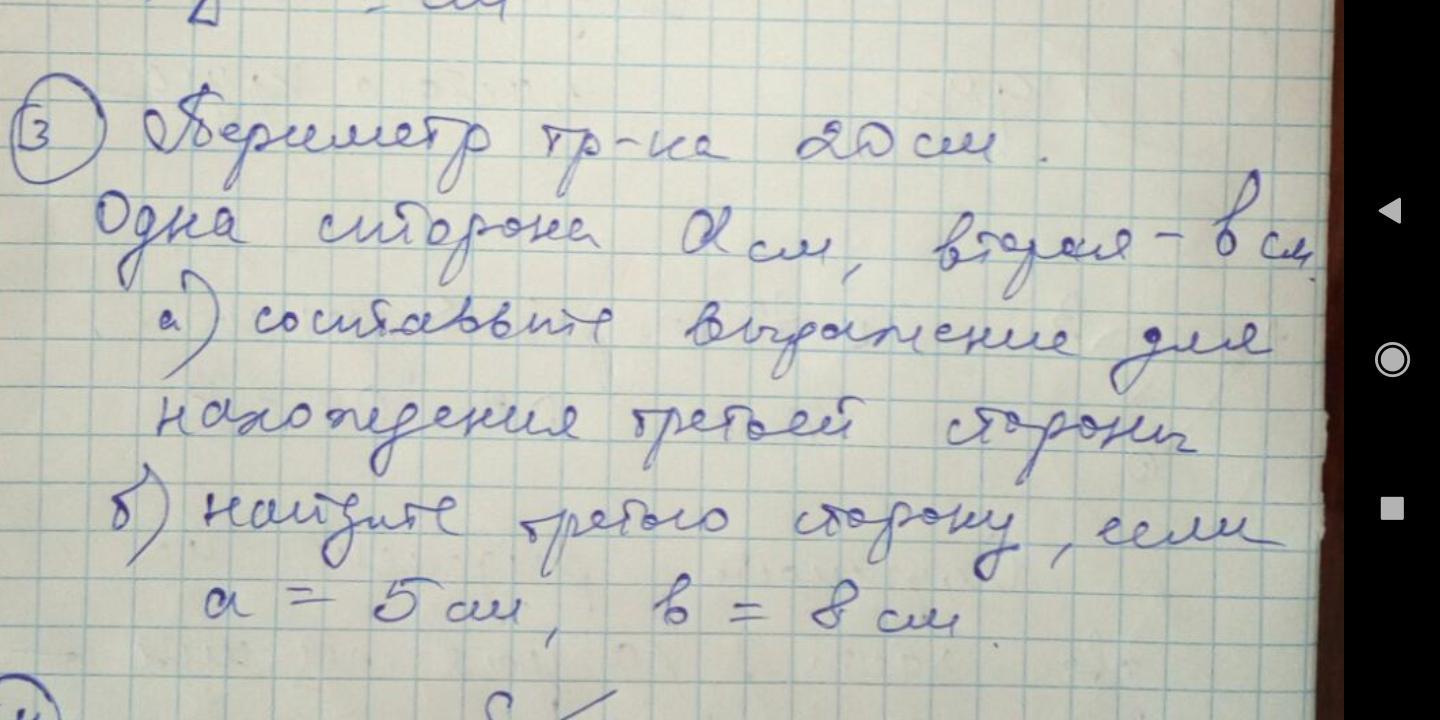 3 Периметр тр-ка 20 см.
Одна сторона a см, вторая - b см.
а) составьте выражение для
нахождения третьей стороны
б) найдите третью сторону, если
a = 5 см, b = 8 см.